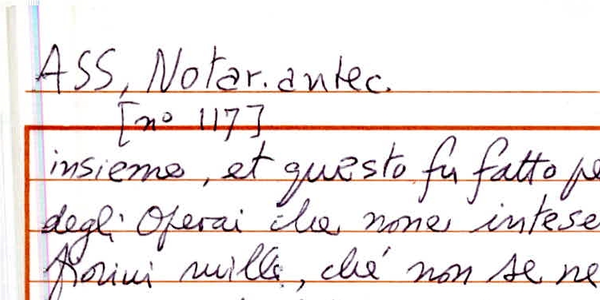 ASS, Notar. antec.
[nº 117]
insieme, et questo fu fatto pe
degli Operai che none intese
fiorini mille, ché non se ne